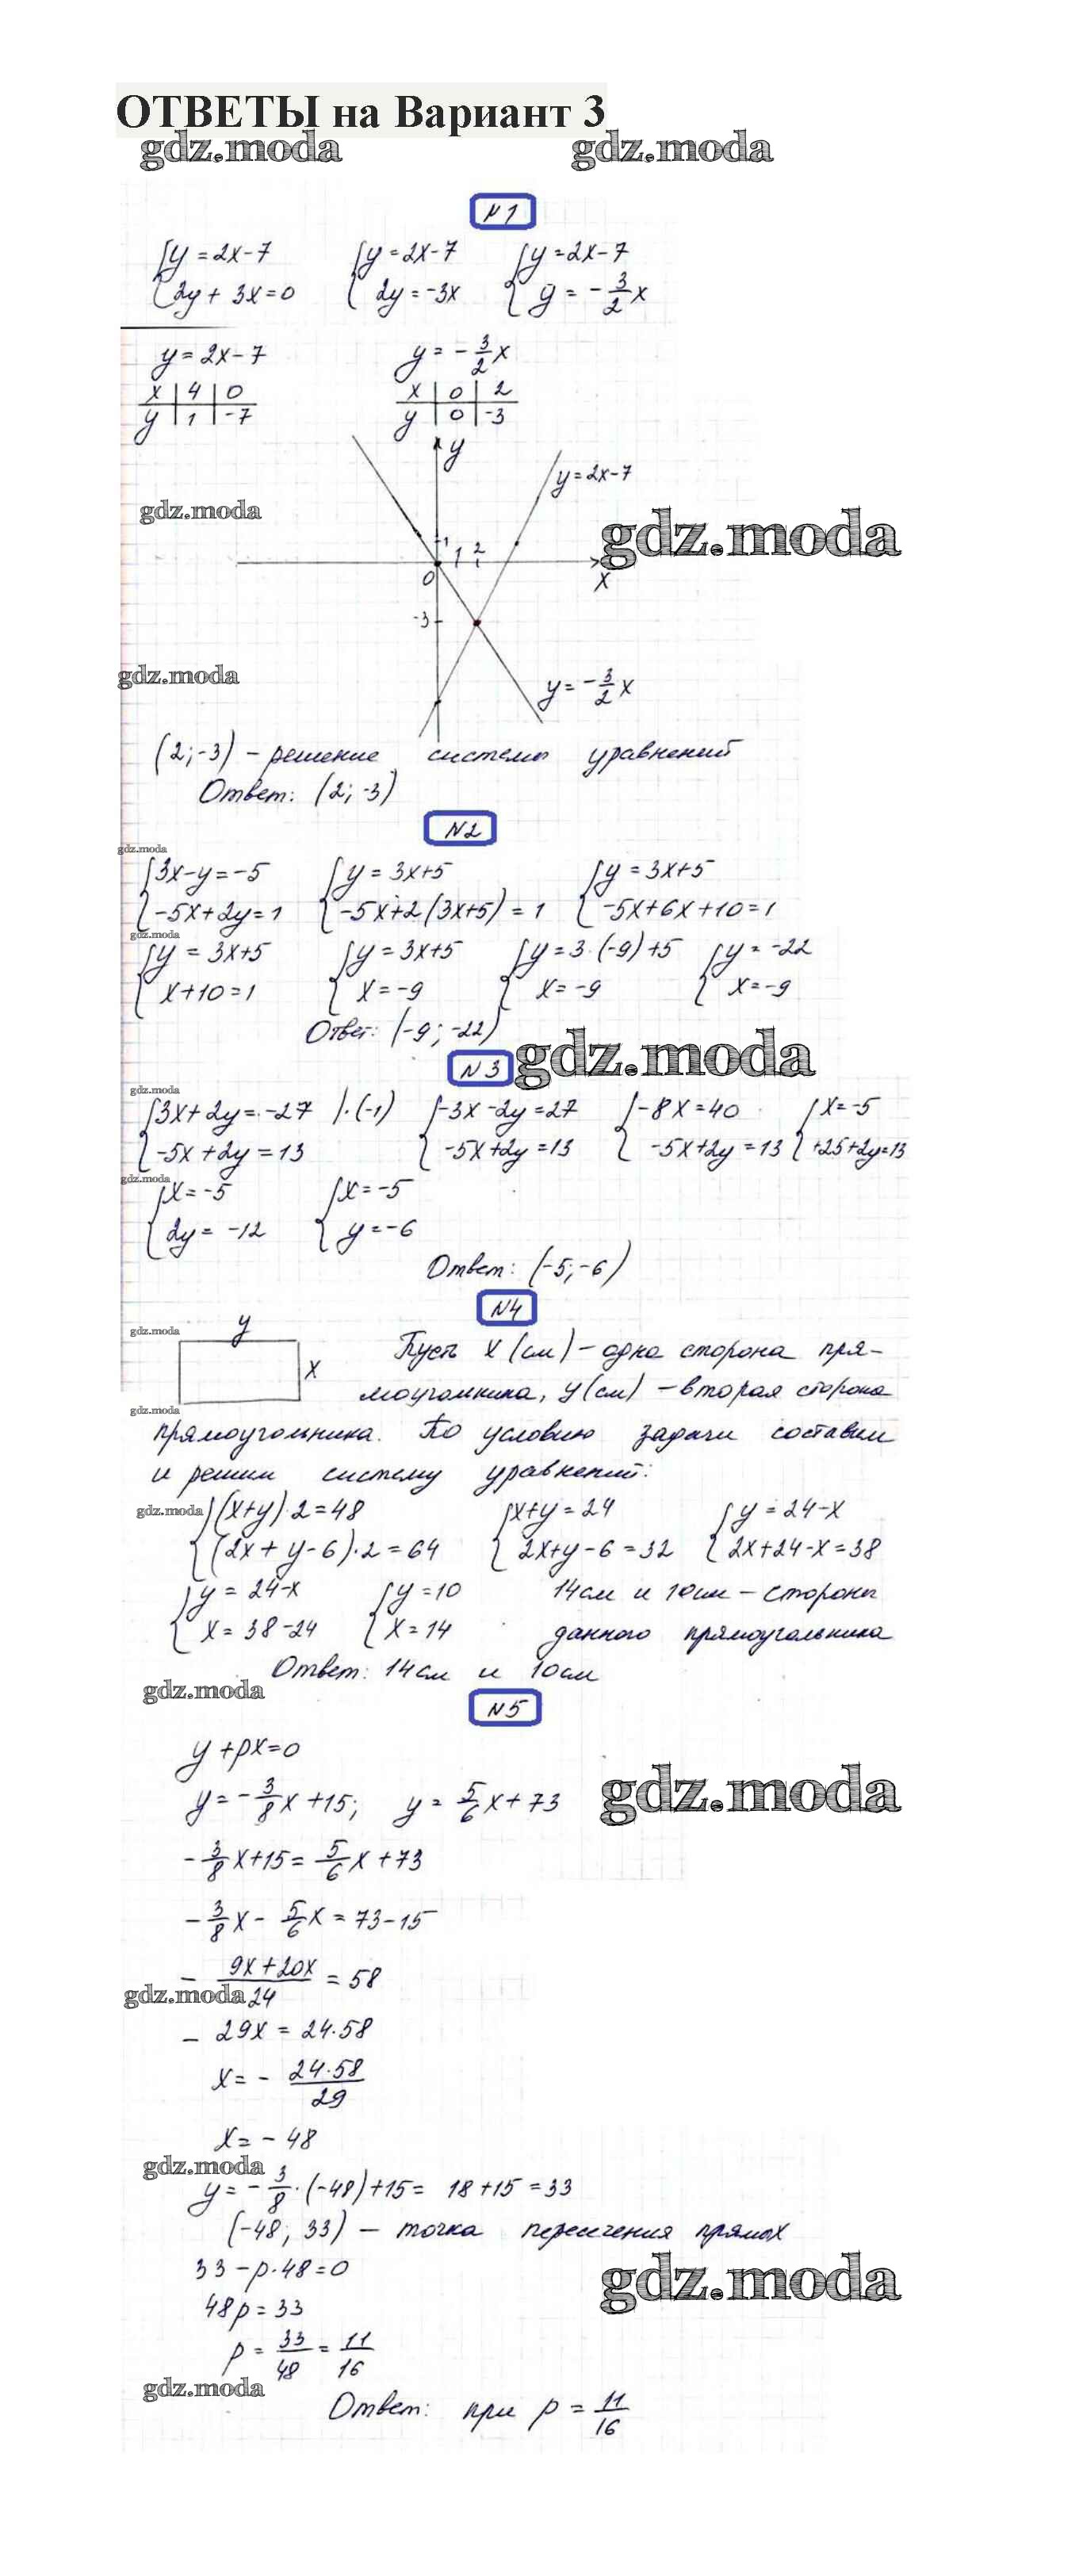 ОТВЕТЫ на Вариант 3
gdz.moda gdz.moda
№1
{y = 2x-7 {y = 2x-7 {y = 2x-7
{2y + 3x = 0 {2y = -3x {y = -3/2 x
y = 2x-7 y = -3/2 x
x | 4 | 0 x | 0 | 2
y | 1 | -7 y | 0 | -3
y
y = 2x-7
gdz.moda
gdz.moda
1 1 2
0 x
-3
gdz.moda
y = -3/2 x
(2; -3) - решение системы уравнений
Ответ: (2; -3)
№2
gdz.moda
{3x-y = -5 {y = 3x+5 {y = 3x+5
{-5x+2y = 1 {-5x+2(3x+5) = 1 {-5x+6x+10 = 1
gdz.moda
{y = 3x+5 {y = 3x+5 {y = 3·(-9)+5 {y = -22
{x+10 = 1 {x = -9 {x = -9 {x = -9
Ответ: (-9; -22)
№3 gdz.moda
gdz.moda
{3x+2y = -27 |·(-1) {-3x-2y = 27 {-8x = 40 {x = -5
{-5x+2y = 13 {-5x+2y = 13 {-5x+2y = 13 {+25+2y = 13
gdz.moda
{x = -5 {x = -5
{2y = -12 {y = -6
Ответ: (-5; -6)
№4
gdz.moda
y
x
Пусть x (см) - одна сторона пря-
моугольника, y (см) - вторая сторона
gdz.moda
прямоугольника. По условию задачи составим
и решим систему уравнений:
gdz.moda
{(x+y)·2 = 48 {x+y = 24 {y = 24-x
{(2x+y-6)·2 = 64 {2x+y-6 = 32 {2x+24-x = 38
{y = 24-x {y = 10 14см и 10см - стороны
{x = 38-24 {x = 14 данного прямоугольника
Ответ: 14см и 10см
gdz.moda
№5
y+px = 0
y = -3/8 x + 15; y = 5/6 x + 73
gdz.moda
-3/8 x + 15 = 5/6 x + 73
-3/8 x - 5/6 x = 73-15
- (9x+20x)/24 = 58
gdz.moda
- 29x = 24·58
x = - (24·58)/29
x = - 48
gdz.moda
y = -3/8·(-48)+15 = 18+15 = 33
(-48; 33) - точка пересечения прямых
33-p·48 = 0
gdz.moda
48p = 33
p = 33/48 = 11/16
gdz.moda
Ответ: при p = 11/16